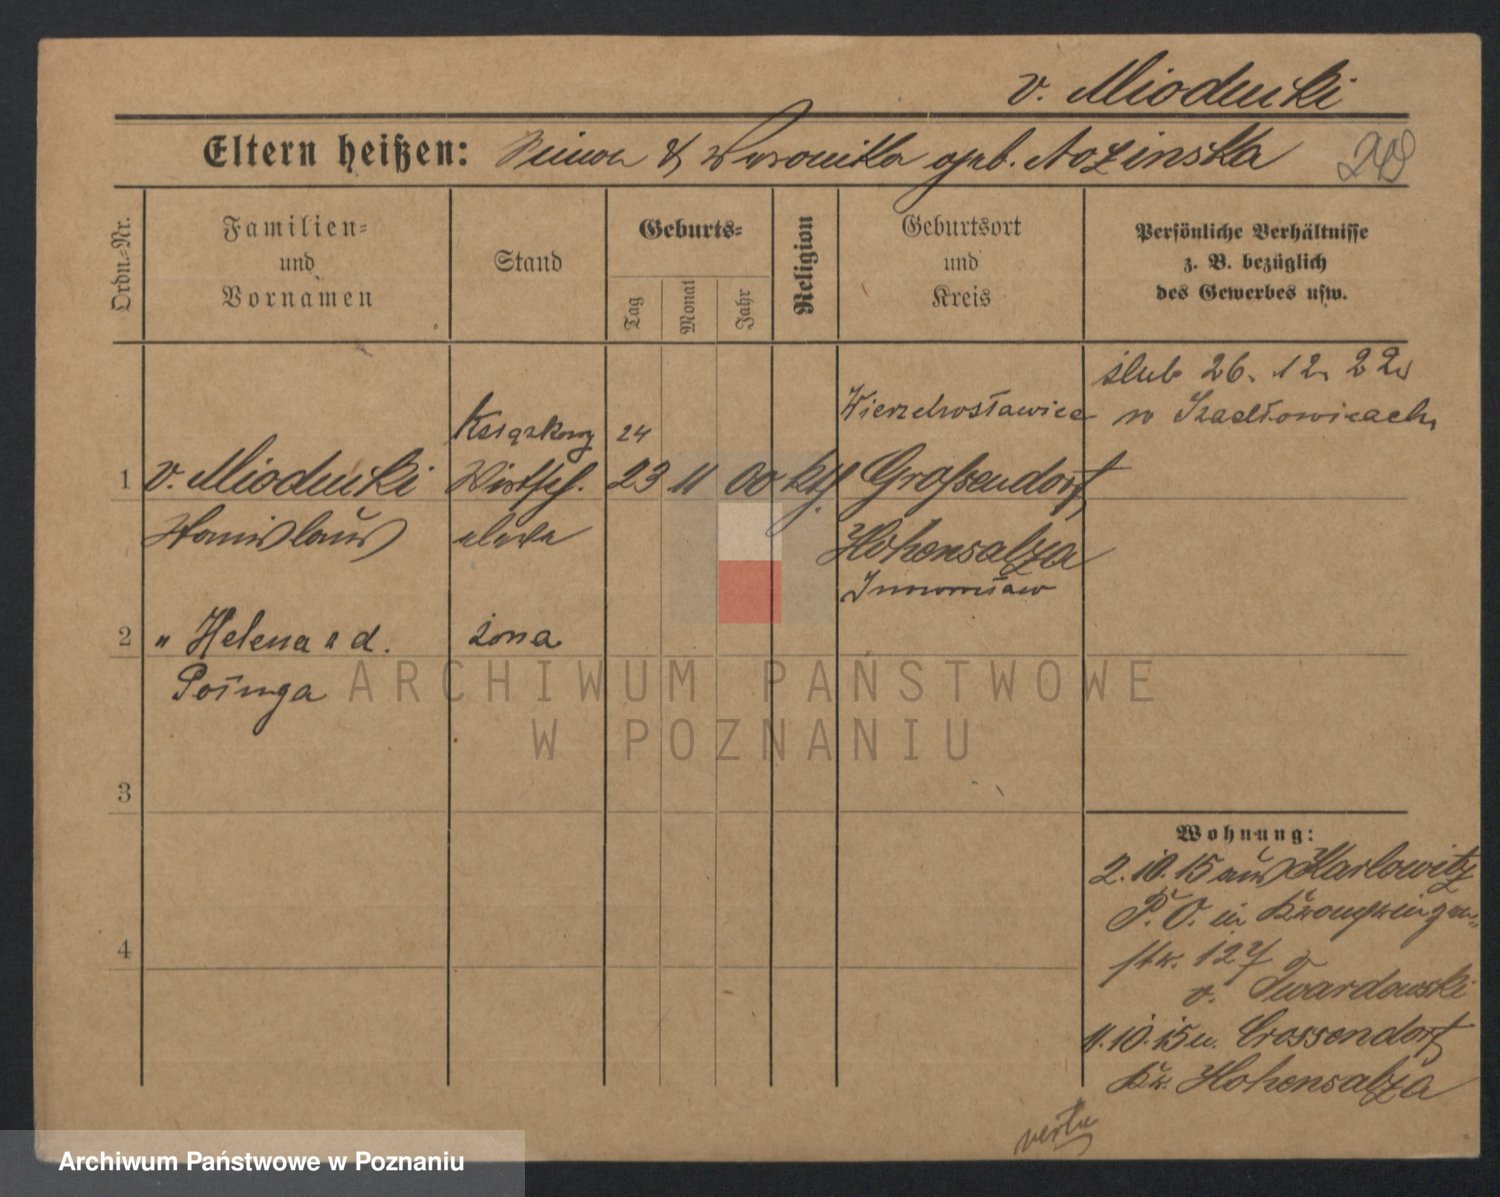 v. Mioducki
Eltern heißen: & Weronika geb. Rozinska
Ordn.-Nr.
Familien=
und
Vornamen
Stand
Geburts=
Tag
Monat
Jahr
Religion
Geburtsort
und
Kreis
Persönliche Verhältnisse
z. B. bezüglich
des Gewerbes usw.
ślub 26. 12. 22
w Szadłowicach
Książkowy 24 Wierzchosławice
1 v. Mioducki Wirtsch. 23 11 00 kth Großendorf
Stanislaus eleve Hohensalza
Inowrocław
2 " Helena z d. żona
Połunga
3
4
Wohnung:
2.10.15 aus Karlowitz
P. O. in Kronprinzen=
str. 127
v. Twardowski
11.10.15 n. Grossendorf
Kr. Hohensalza
verte
ARCHIWUM PAŃSTWOWE
W POZNANIU
Archiwum Państwowe w Poznaniu